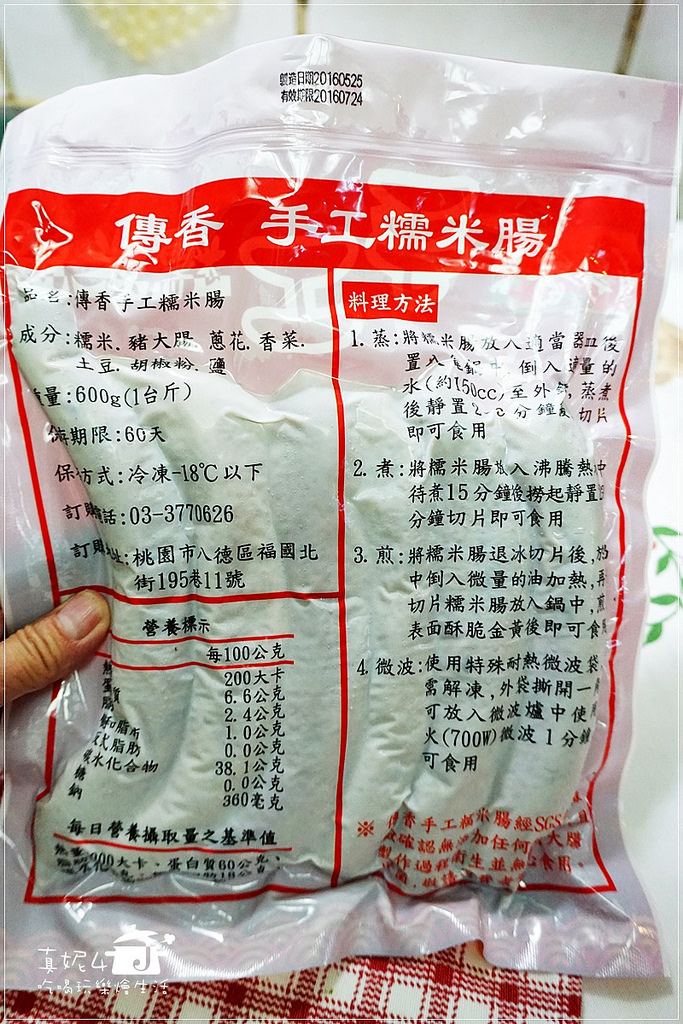 製造日期20160525
有效期限20160724
傳香 手工糯米腸
品名:傳香手工糯米腸
成分:糯米.豬大腸.蔥花.香菜.
土豆.胡椒粉.鹽
量:600g(1台斤)
期限:60天
保 方式:冷凍-18℃以下
訂購 話:03-3770626
訂購 址:桃園市八德區福國北
街195巷11號
營養標示
每100公克
熱 200大卡
蛋 質 6.6公克
脂 2.4公克
和脂肪 1.0公克
式脂肪 0.0公克
水化合物 38.1公克
糖 0.0公克
鈉 360毫克
每日營養攝取量之基準值
000大卡、蛋白質60公克、
料理方法
1.蒸:將糯米腸放入適當器皿後
置入 鍋中 倒入 量的
水(約150cc)至外 蒸煮
後靜置 分鐘 切片
即可食用
2.煮:將糯米腸放入沸騰熱 中
待煮15分鐘後撈起靜置
分鐘切片即可食用
3.煎:將糯米腸退冰切片後,
中倒入微量的油加熱,再
切片糯米腸放入鍋中,煎
表面酥脆金黃後即可食
4.微波:使用特殊耐熱微波袋
需解凍,外袋撕開一
可放入微波爐中使
火(700W)微波1分鐘
可食用
※ 傳香手工糯米腸經SGS
確認無 加任何 大腸
製作過程衛生並無 食用。
真妮4
吃喝玩樂燴生活